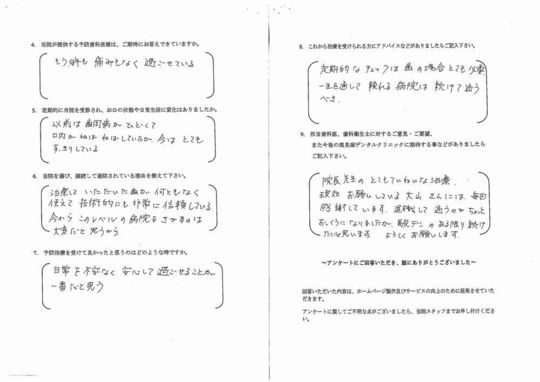 4. 当院が提供する予防歯科医療は、ご期待にお答えできていますか。
もう何年も 痛みもなく 過ごせている
5. 定期的に当院を受診され、お口の状態や日常生活に変化はありましたか。
以前は歯周病がひどくて
口内がねばねばしていたが、今はとても
すっきりしている
6. 当院を選び、継続して通院されている理由を教えて下さい。
治療していただいた歯が何ともなく
使えて技術的にも非常に信頼している
今から このレベルの病院をさがすのは
大変だと思うから
7. 予防治療を受けて良かったと思うのはどのような時ですか。
日常を不安なく 安心して過ごせることが
一番だと思う
8. これから治療を受けられる方にアドバイスなどがありましたらご記入下さい。
定期的なチェックは歯の場合とても必要
一生を通して頼れる病院は続けて通う
べき。
9. 担当歯科医、歯科衛生士に対するご意見・ご要望、
また今後の馬見塚デンタルクリニックに期待する事などがありましたら
ご記入下さい。
院長先生のとてもていねいな治療、
現在お願いしている大山さんには、毎回
感謝しています。退職して通うのがちょっと
おっくうになりましたが、馬見デンのある限り続け
たいと思います よろしくお願いします。
～アンケートにご回答いただき、誠にありがとうございました～
回答いただいた内容は、ホームページ製作及びサービスの向上のために活用させていた
だきます。
アンケートに関してご不明な点がございましたら、当院スタッフまでお申し付けくださ
い。